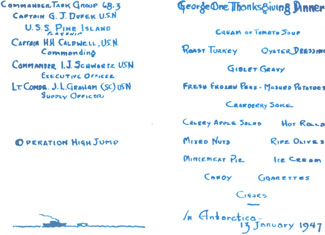 Commander Task Group 68.3
Captain G. J. Dufek USN
U.S.S. Pine Island
Captain H.H. Caldwell, USN
Commanding
Commander I. J. Schwartz USN
Executive Officer
Lt Comdr. J. L. Graham (SC) USN
Supply Officer
Operation High Jump
George One Thanksgiving Dinner
Cream of Tomato Soup
Roast Turkey Oyster Dressing
Giblet Gravy
Fresh Frozen Peas - Mashed Potatoes
Cranberry Sauce
Celery Apple Salad Hot Rolls
Mixed Nuts Ripe Olives
Mincemeat Pie Ice Cream
Candy Cigarettes
Cigars
In Antarctica
13 January 1947